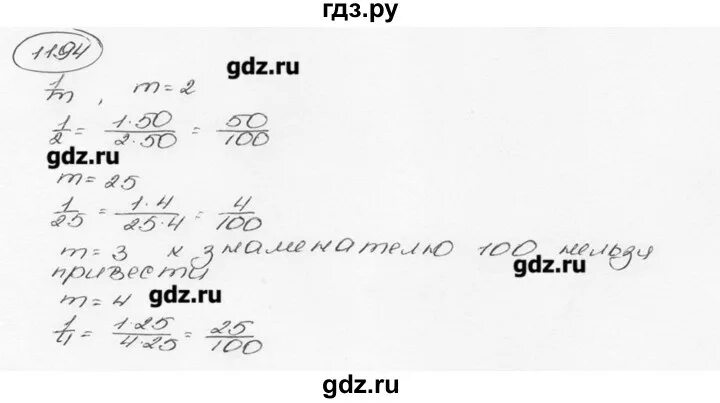 гдз.ру
1194
gdz.ru
1/m , m=2
1/2 = 1·50/2·50 = 50/100
gdz.ru
m=25
1/25 = 1·4/25·4 = 4/100
m=3 к знаменателю 100 нельзя
привести
gdz.ru
m=4
gdz.ru
1/4 = 1·25/4·25 = 25/100
gdz.ru